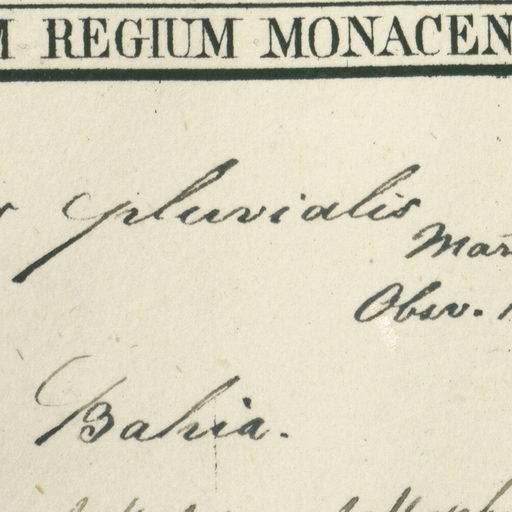 M REGIUM MONACEN
pluvialis
Mar
Obsv.
Bahia.